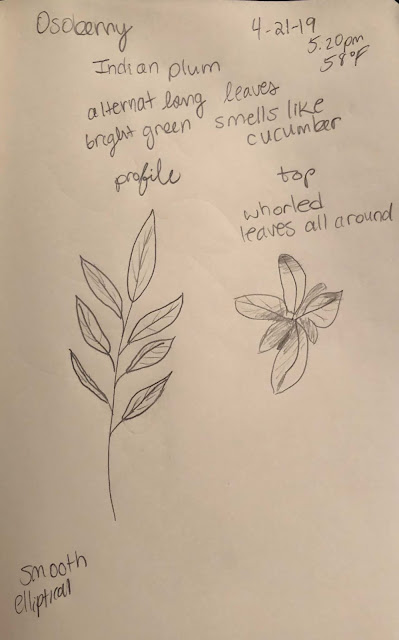 Osoberry
4-21-19
5:20pm
58°F
Indian plum
alternat long leaves
bright green smells like
cucumber
profile
top
whorled
leaves all around
smooth
elliptical